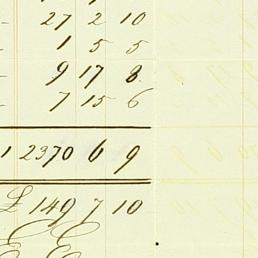 27 2 10
1 5 5
9 17 8
7 15 6
1 2370 6 9
£ 149 7 10